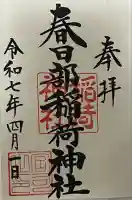 奉拝
春日部稲荷神社
令和七年四月一日